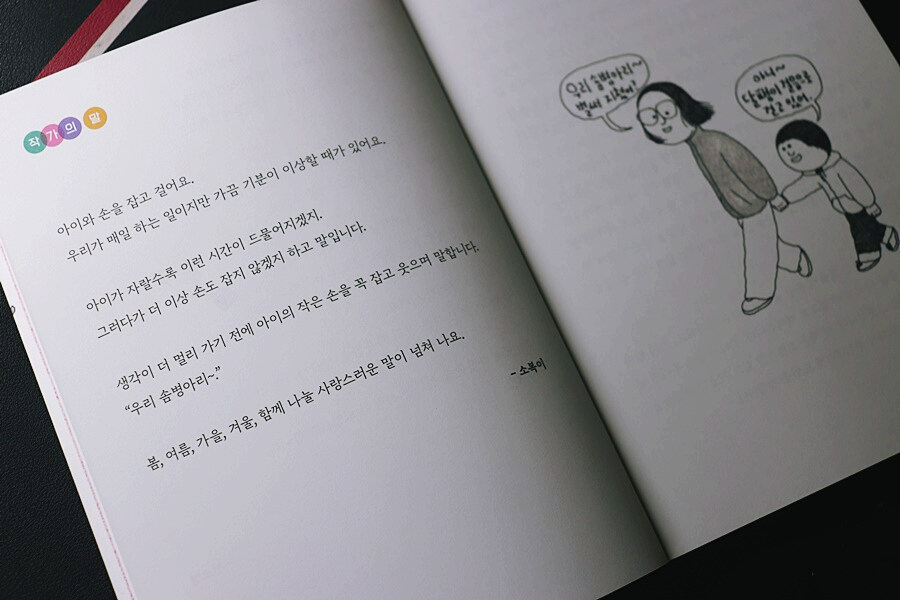 작가의 말
아이와 손을 잡고 걸어요.
우리가 매일 하는 일이지만 가끔 기분이 이상할 때가 있어요.
아이가 자랄수록 이런 시간이 드물어지겠지.
그러다가 더 이상 손도 잡지 않겠지 하고 말입니다.
생각이 더 멀리 가기 전에 아이의 작은 손을 꼭 잡고 웃으며 말합니다.
“우리 솜병아리~.”
봄, 여름, 가을, 겨울, 함께 나눌 사랑스러운 말이 넘쳐 나요.
- 소복이
우리 솜병아리~
벌써 지쳤어?
아니~
달팽이 걸음으로
걷고 있어.